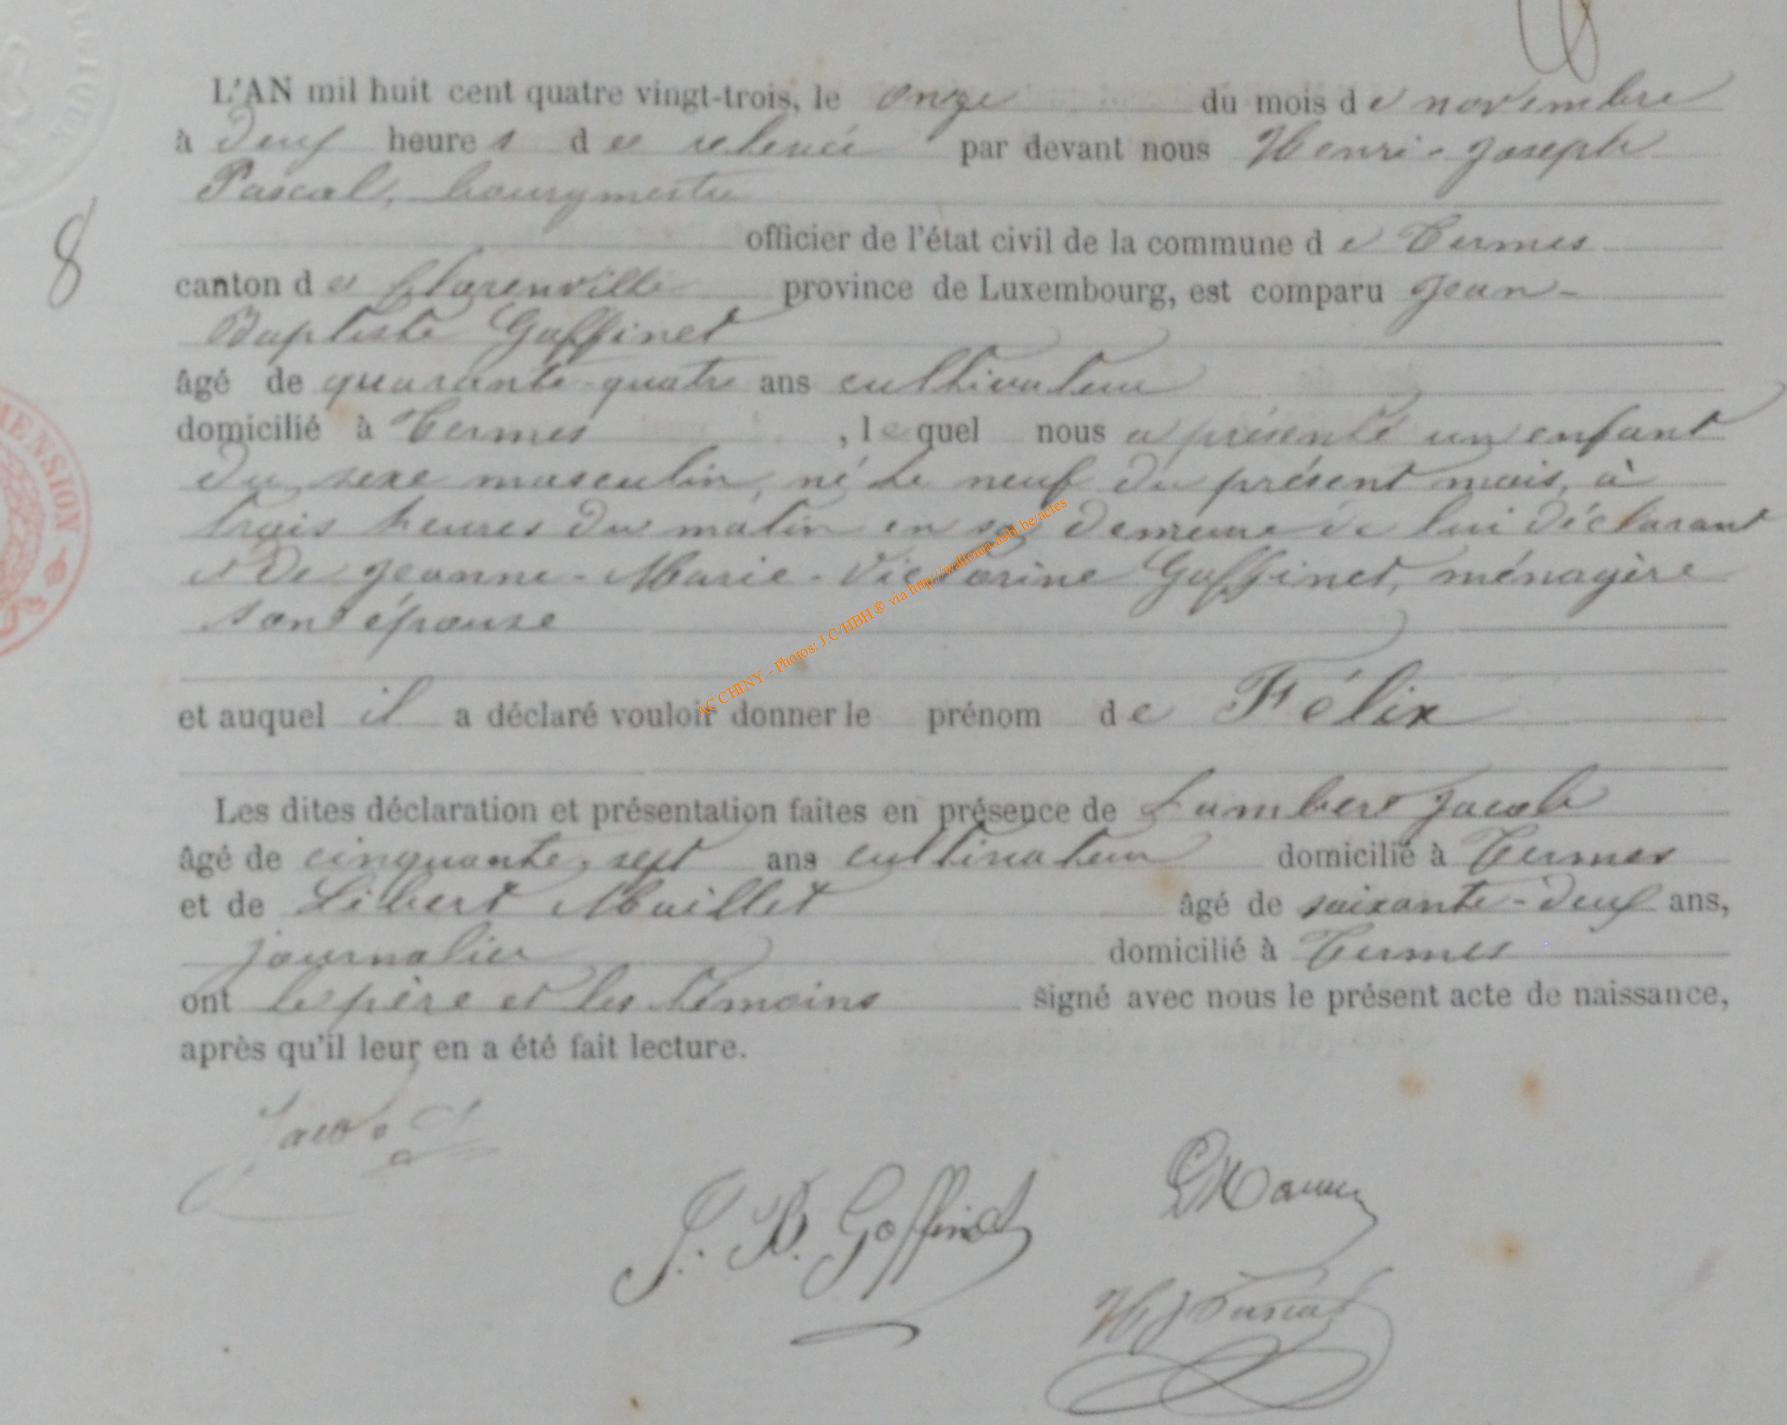 L'AN mil huit cent quatre vingt-trois, le onze du mois de novembre
à deux heures de relevée par devant nous Henri-Joseph
Pascal, bourgmestre
officier de l'état civil de la commune de Termes
8
canton de Florenville province de Luxembourg, est comparu Jean-
Baptiste Goffinet
âgé de quarante-quatre ans cultivateur
domicilié à Termes , lequel nous a présenté un enfant
du sexe masculin, né le neuf du présent mois, à
trois heures du matin en sa demeure de lui déclarant
et de Jeanne-Marie-Victorine Goffinet, ménagère
son épouse
et auquel il a déclaré vouloir donner le prénom de Félix
Les dites déclaration et présentation faites en présence de Lambert Jacob
âgé de cinquante-sept ans cultivateur domicilié à Termes
et de Libert Maillet âgé de soixante-deux ans,
journalier domicilié à Termes
ont le père et les témoins signé avec nous le présent acte de naissance,
après qu'il leur en a été fait lecture.
Jacob
J. B. Goffinet
HJ Pascal
MENSION
AC CHINY - Photos: J.C-HBH ® via